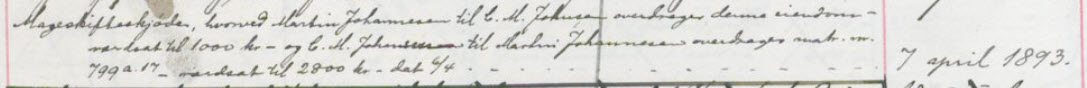 Mageskifteskjøder, hvorved Martin Johannesen til C. M. Johnsen overdrager denne eiendom –
værdsat til 1000 kr – og C. M. Johnsen til Martin Johannesen overdrager matr. nr.
799 a. 17 – værdsat til 2800 kr – dat 6/4 . - - - - - - - - 7 april 1893.